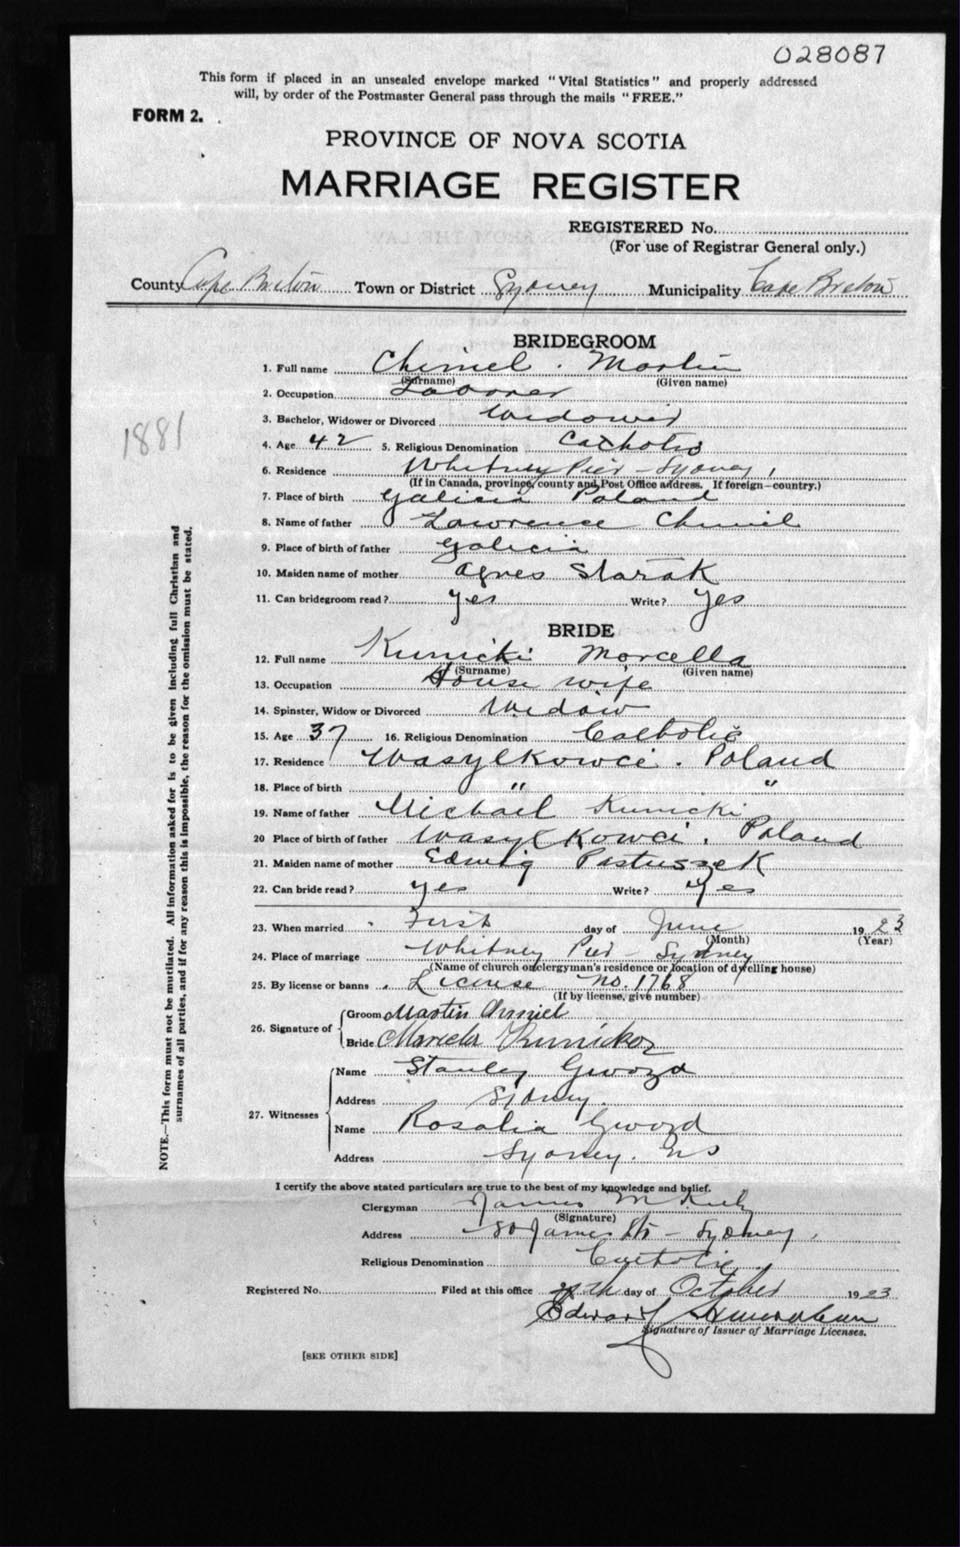 028087
This form if placed in an unsealed envelope marked "Vital Statistics" and properly addressed
will, by order of the Postmaster General pass through the mails "FREE."
FORM 2.
PROVINCE OF NOVA SCOTIA
MARRIAGE REGISTER
REGISTERED No.
(For use of Registrar General only.)
County Cape Breton Town or District Sydney Municipality Cape Breton
BRIDEGROOM
1. Full name Chmiel. Martin
(Surname) (Given name)
2. Occupation Laborer
3. Bachelor, Widower or Divorced Widower
1881
4. Age 42 5. Religious Denomination Catholic
6. Residence Whitney Pier - Sydney,
(If in Canada, province, county and Post Office address. If foreign—country.)
7. Place of birth Galicia Poland
8. Name of father Lawrence Chmiel
9. Place of birth of father Galicia
10. Maiden name of mother Agnes Starak
11. Can bridegroom read? Yes Write? Yes
BRIDE
12. Full name Kunicki Marcella
(Surname) (Given name)
13. Occupation House wife
14. Spinster, Widow or Divorced Widow
15. Age 37 16. Religious Denomination Catholic
17. Residence Wasylkowci. Poland
18. Place of birth " "
19. Name of father Michael Kunicki
20 Place of birth of father Wasylkowci. Poland
21. Maiden name of mother Edwig Pastuszek
22. Can bride read? yes Write? Yes
23. When married First day of June 1923
(Month) (Year)
24. Place of marriage Whitney Pier - Sydney
(Name of church or clergyman's residence or location of dwelling house)
25. By license or banns License No. 1768
(If by license, give number)
26. Signature of Groom Martin Chmiel
Bride Kunicka
27. Witnesses Name Stanley Gwozd
Address Sydney.
Name Rosalia Gwozd
Address Sydney. NS
I certify the above stated particulars are true to the best of my knowledge and belief.
Clergyman James
(Signature)
Address James St - Sydney,
Religious Denomination Catholic
Registered No. Filed at this office day of October 1923
Edward
Signature of Issuer of Marriage Licenses.
[SEE OTHER SIDE]
NOTE.—This form must not be mutilated. All information asked for is to be given including full Christian and
surnames of all parties, and if for any reason this is impossible, the reason for the omission must be stated.